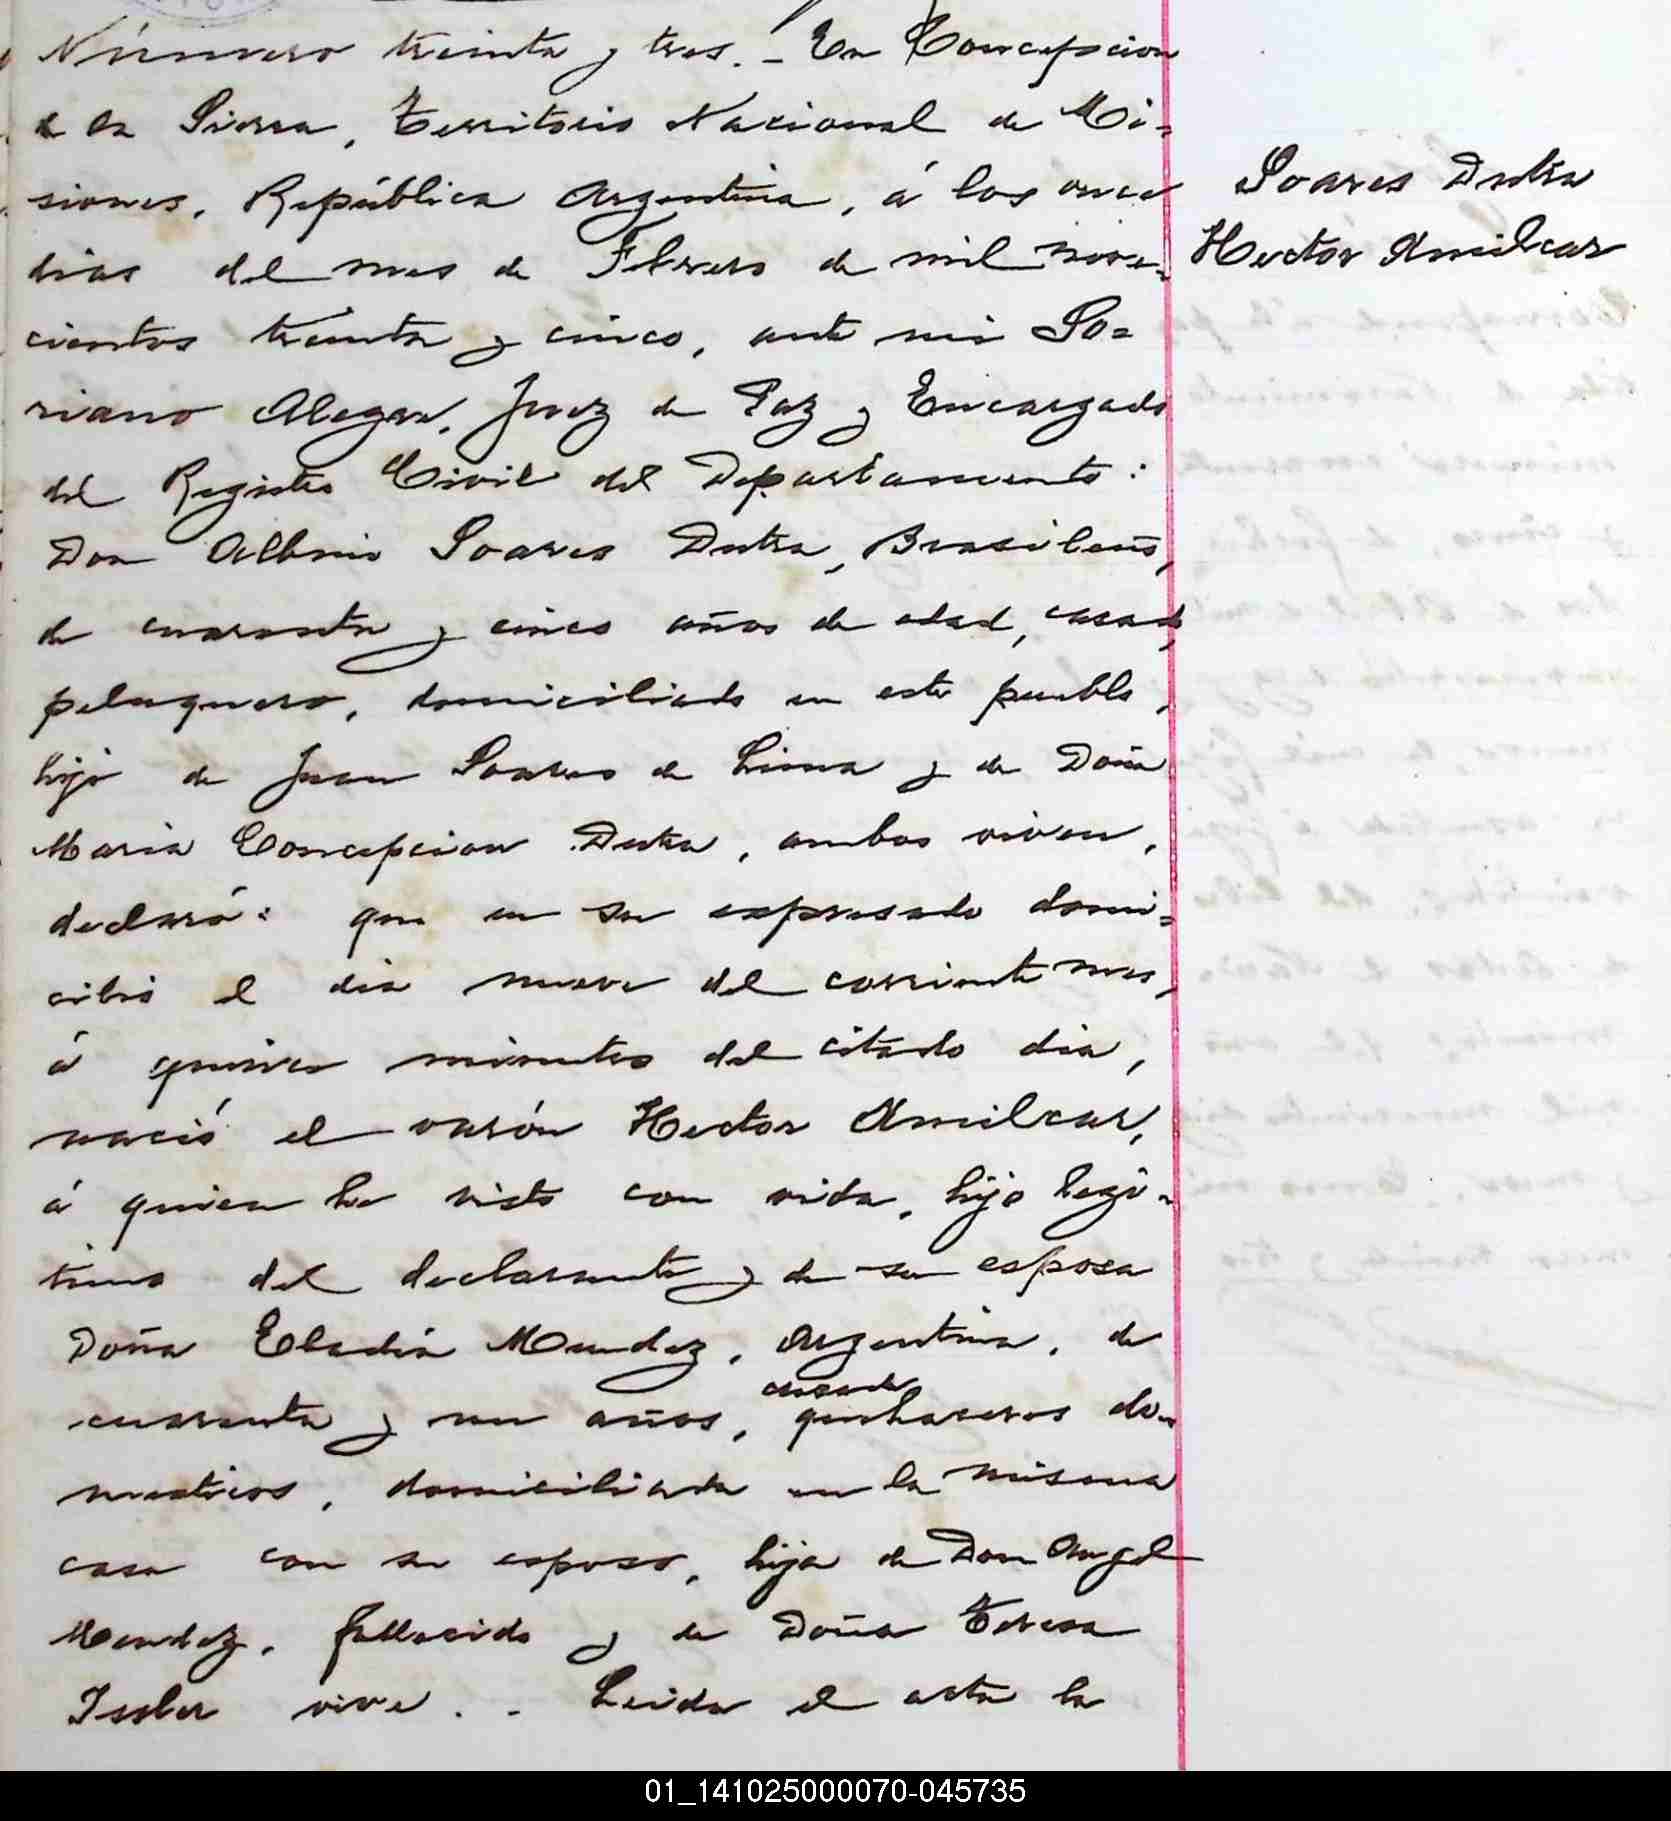 Número treinta y tres. - En Concepcion
de la Sierra, Territorio Nacional de Mi=
siones, República Argentina, á los once
dias del mes de Febrero de mil nove=
cientos treinta y cinco, ante mi So=
riano Alegre, Juez de Paz y Encargado
del Registro Civil del Departamento:
Don Albino Soares Dutra, Brasileño,
de cuarenta y cinco años de edad, casado,
peluquero, domiciliado en este pueblo,
hijo de Juan Soares de Lima y de Doña
Maria Concepcion Dutra, ambos viven,
declaró: que en su expresado domi=
cilio el dia nueve del corriente mes,
á quince minutos del citado dia,
nació el varón Hector Amilcar,
á quien he visto con vida, hijo legi=
timo del declarante y de su esposa
Doña Eladia Mendez, Argentina, de
casada
cuarenta y un años, quehaceres do=
mesticos, domiciliada en la misma
casa con su esposo, hija de Don Angel
Mendez, fallecido y de Doña Teresa
vive. - Leida el acta la
Soares Dutra
Hector Amilcar
01_141025000070-045735